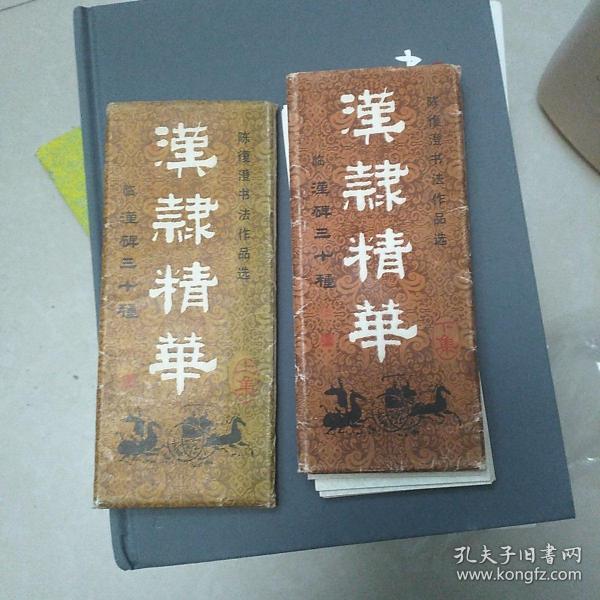 陈復澄书法作品选
漢隷精華
临漢碑三十種
上集
陈復澄书法作品选
漢隷精華
临漢碑三十種
下集
孔夫子旧書网
www.kongfz.com